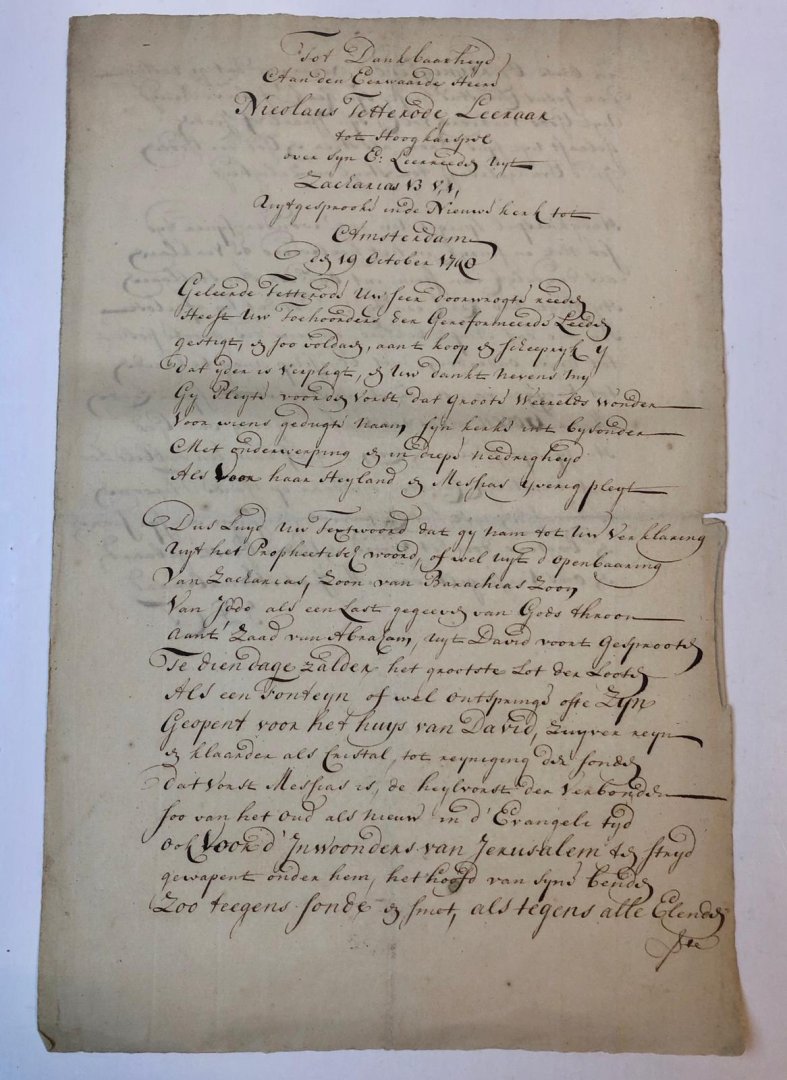 Tot Dankbaarheyd
Aan den Eerwaarde Heere
Nicolaus Tetterode, Leeraar
tot Hoogkarspel
over syn E: Leerreede uyt
Zacharias 13 v, 1,
Uytgesprooke in de Nieuwe kerk tot
Amsterdam
den 19 October 1740
Geleerde Tetterode Uw seer doorwrogte reeden
Heeft Uw Toehoorders Een Gereformeerde Leeden
gestigt, en soo voldaen, aan't koop en scheepryk Y
Dat yder is verpligt, en Uw dankt nevens my
Gy Pleyte voor den Vorst dat groote Weerelds wonder
Voor wiens gedugte Naam syn kerke int bysonder
Met onderwerping en in diepe needrigheyd
Als Voor haar Heyland en Messias yverig pleyt
Dus Luyd Uw Textwoord dat gy nam tot Uw Verklaring
Uyt het Prophetisch woord, of wel uyt d'openbaaring
Van Zacharias, Zoon van Barachias Zoon
Van Jddo als een Last gegeeven van Gods throon
Aant' Zaad van Abraham, uyt David voort Gesprooten
Te dien dage zalder het grootste Lot der Looten
Als een Fonteyn of wel ontspringe ofte Zyn
Geopent voor het huys van David, Zuyver reyn
en klaarder als Cristal, tot reyniging der sonden
Dat Vorst Messias is, de heylvorst der Verbonden
soo van het oud als nieuw in d' Evangeli tyd
ook Voor d' Jnwoonders van Jerusalem ten stryd
gewapent onder hem, het hoofd van syne benden
Zoo teegens sonde en smet, als tegens alle Elenden